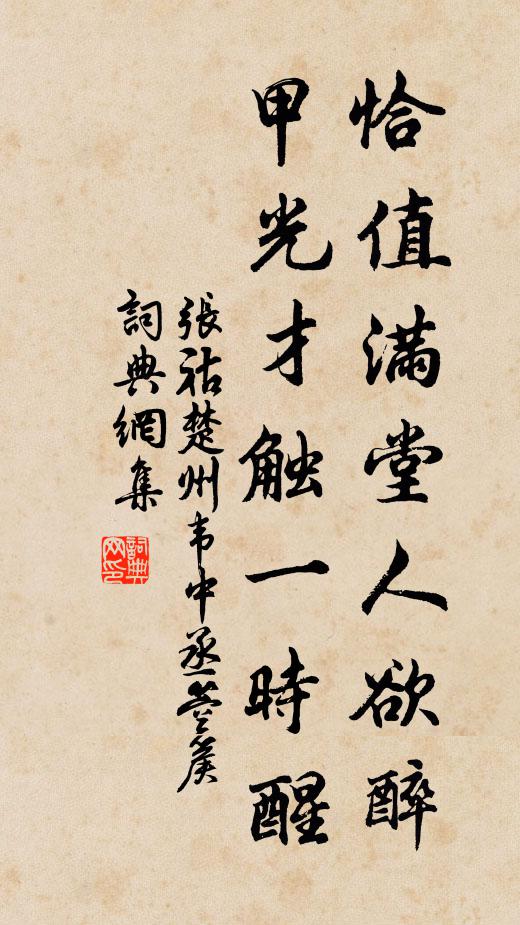 恰值滿堂人欲醉
甲光才触一時醒
張祜楚州韦中丞箜篌
詞典網集
詞典网印